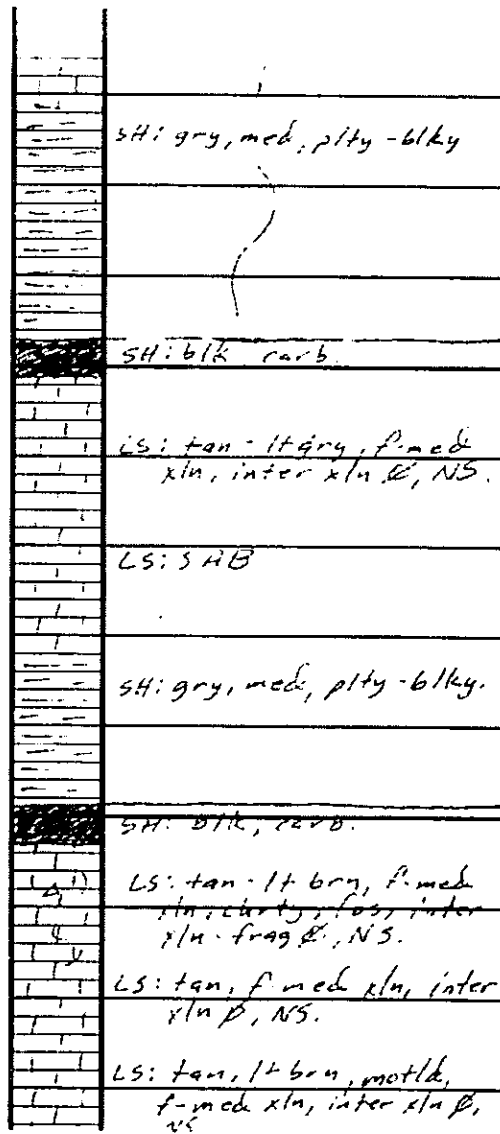 SH: gry, med, plty-blky
SH: blk carb.
LS: tan-lt gry, f-med
xln, inter xln Ø, NS.
LS: SAB
SH: gry, med, plty-blky.
SH: blk, carb.
LS: tan-lt brn, f-med
xln, chrty, fos, inter
xln-frag Ø, NS.
LS: tan, f-med xln, inter
xln Ø, NS.
LS: tan, lt brn, motld,
f-med xln, inter xln Ø,
NS